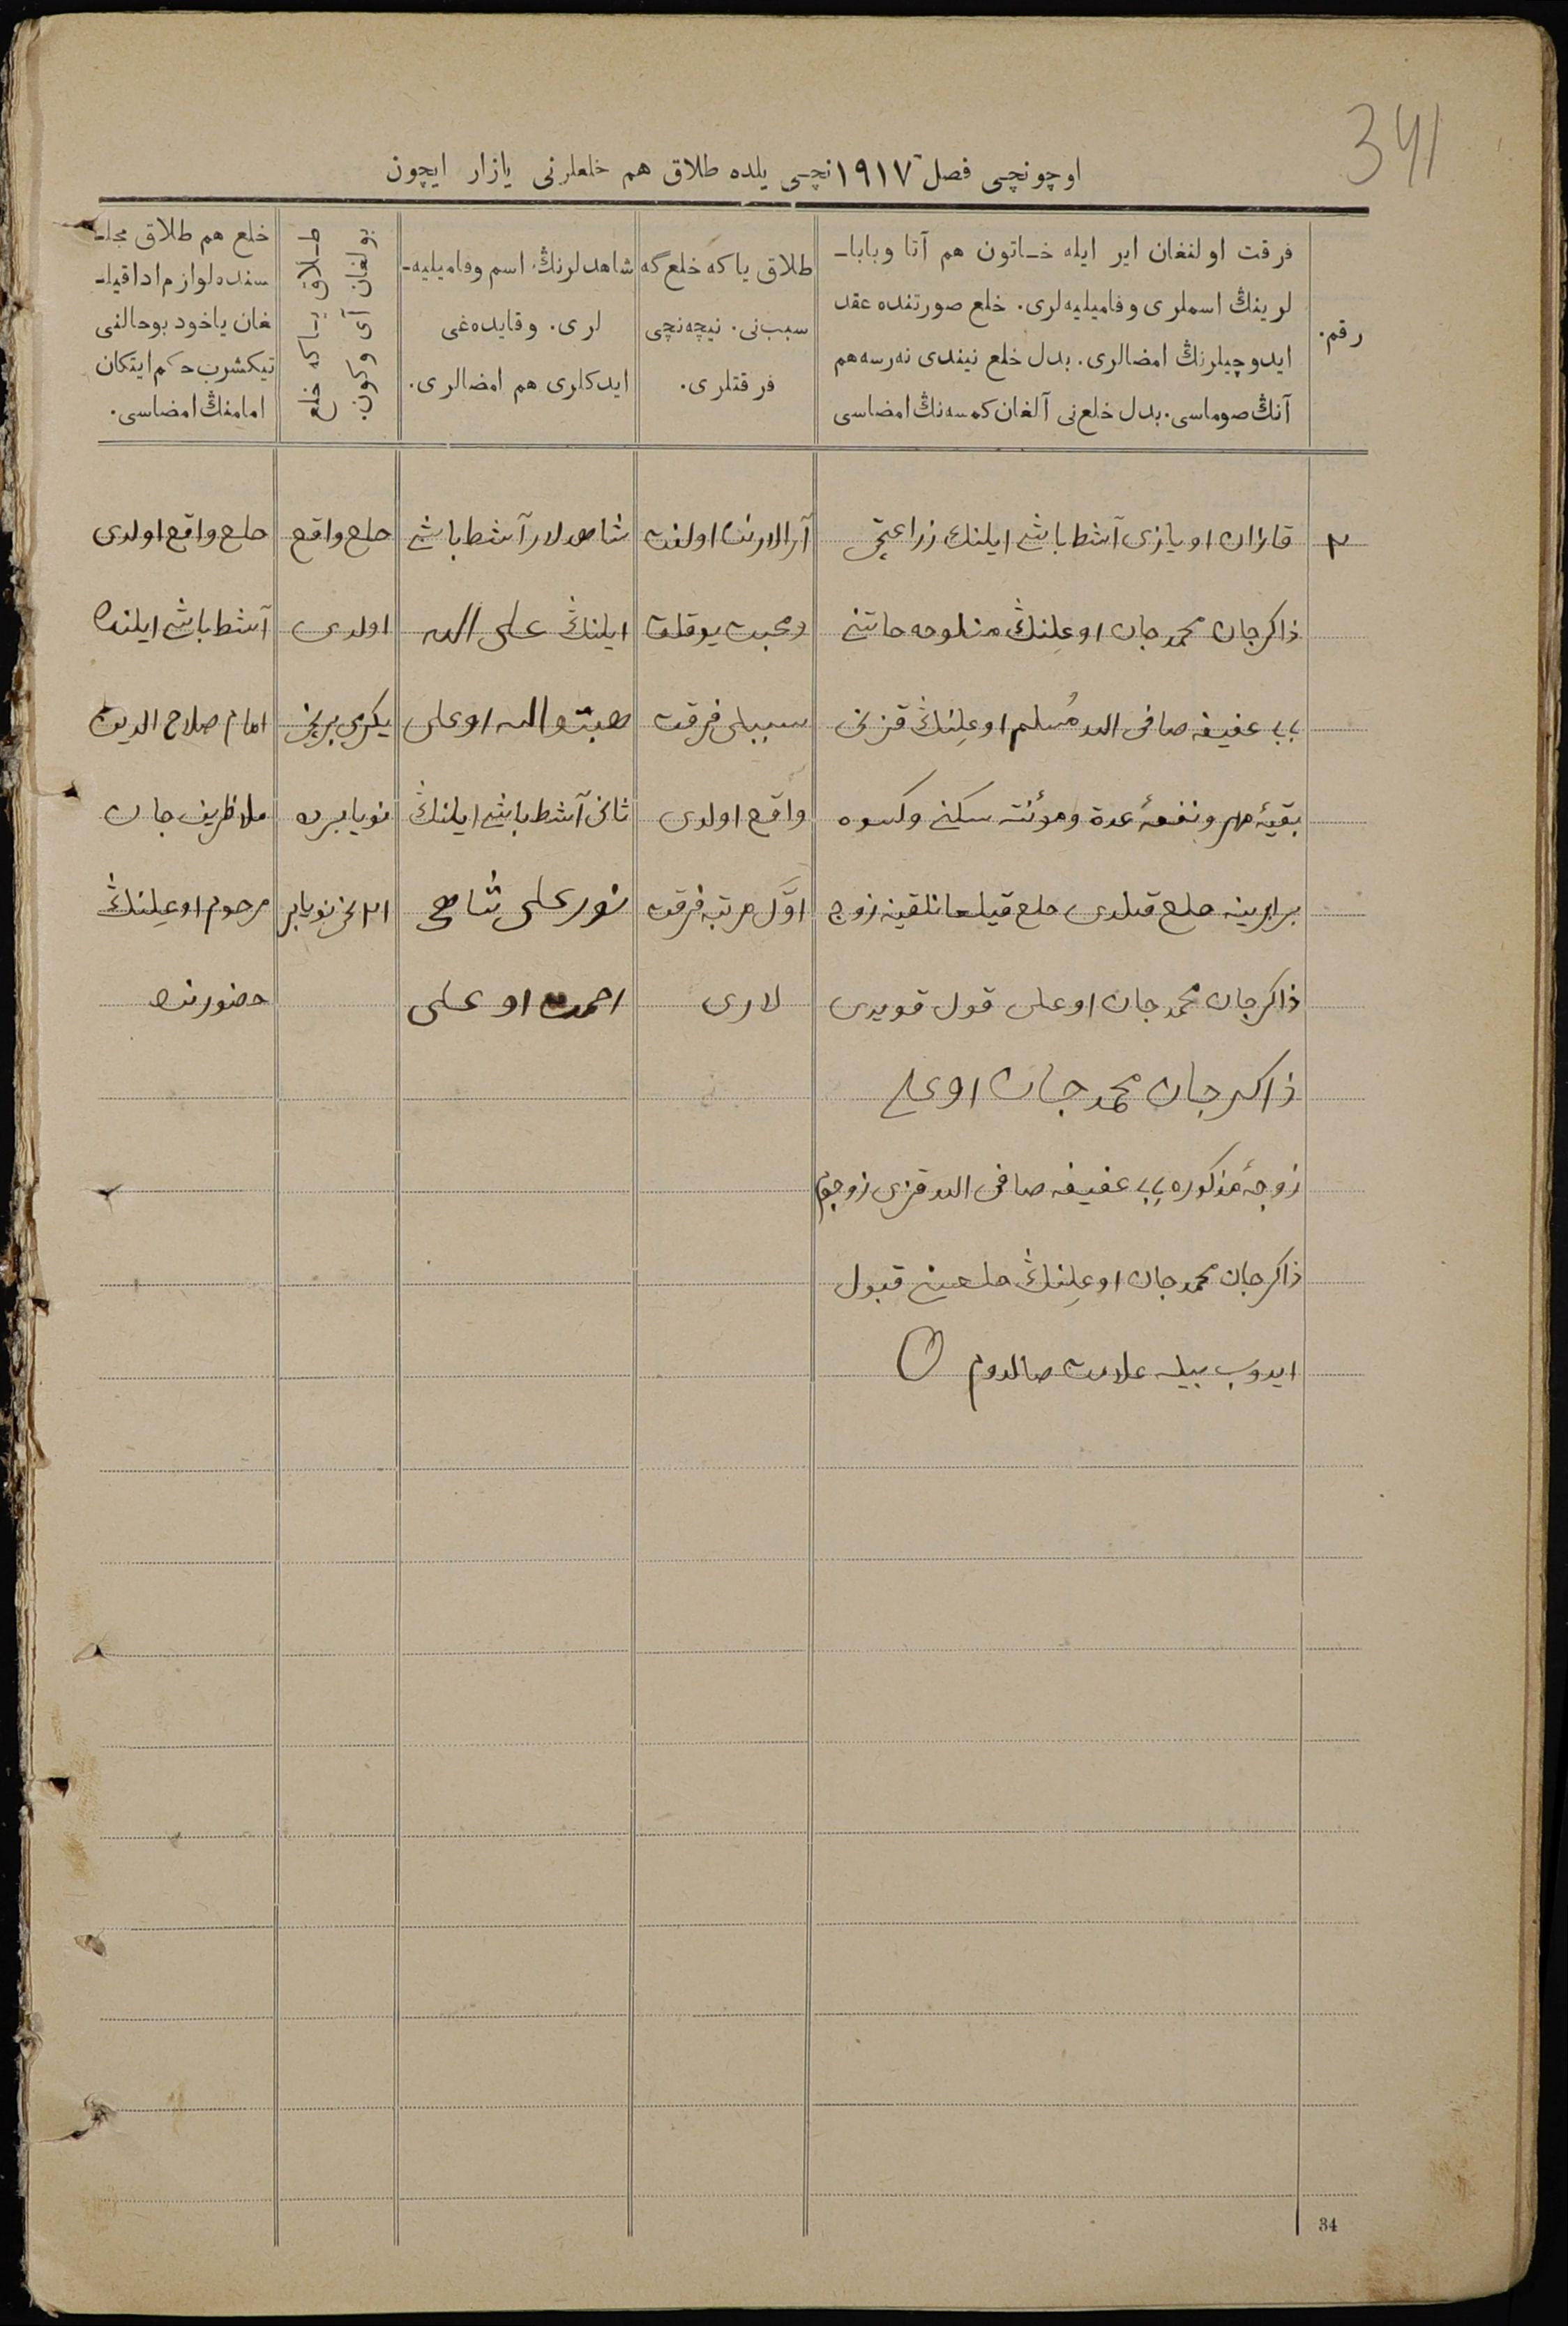 341
اوچونچی فصل ١٩١٧ نچی یلده طلاق هم خلعلرنی یازار ایچون
رقم.
فرقت اولنغان ایر ایله خاتون هم آتا وبابا-
لرینڭ اسملری وفامیلیه‌لری. خلع صورتنده عقد
ایدوچیلرنڭ امضالری. بدل خلع نیندی نه‌رسه هم
آنڭ صوماسی. بدل خلع‌نی آلغان کمسه‌نڭ امضاسی
طلاق یاکه خلع گه
سبب نی. نیچه‌نچی
فرقتلری.
شاهدلرنڭ اسم وفامیلیه-
لری. وقایده‌غی
ایدکلری هم امضالری.
طلاق یاکه خلع
بولغان آی وکون.
خلع هم طلاق مجلـ-
سنده لوازم ادا قیلـ-
غان یاخود بوحالنی
تیکشرب حکم ایتکان
امامنڭ امضاسی.
٣
قازان اویازی آشطباشی ایلنڭ زراعتچی
ذاکرجان محمدجان اوغلنڭ منکوحه خاتنی
بی بی عفیفه صافی الله مسلم اوغلنڭ قزنی
بقیۀ مهر ونفقۀ عدة ومؤنته سکنی وکسوه
برابرینه خلع قیلدی خلع قیلغانلقینه زوج
ذاکرجان محمدجان اوغلی قول قویدی
ذاکرجان محمدجان اوغلی
زوجۀ مذکوره بی بی عفیفه صافی الله قزی زوجم
ذاکرجان محمدجان اوغلنڭ خلعینی قبول
ایدوب بیله علامت صالدوم
آرالارنده اولفت
ومحبت یوقلق
سببلی فرقت
واقع اولدی
اوّل مرتبه فرقت
لاری
شاهدلار آشطباشی
ایلنڭ علی الله
هبة الله اوغلی
ثانی آشطباشی ایلنڭ
نورعلی شاهی
احمد اوغلی
خلع واقع
اولدی
یکرمی برنچی
نویابرده
٢١ نچی نویابر
خلع واقع اولدی
آشطباشی ایلنده
امام صلاح الدین
ملا ظریف جان
مرحوم اوغلنڭ
حضورنده
34